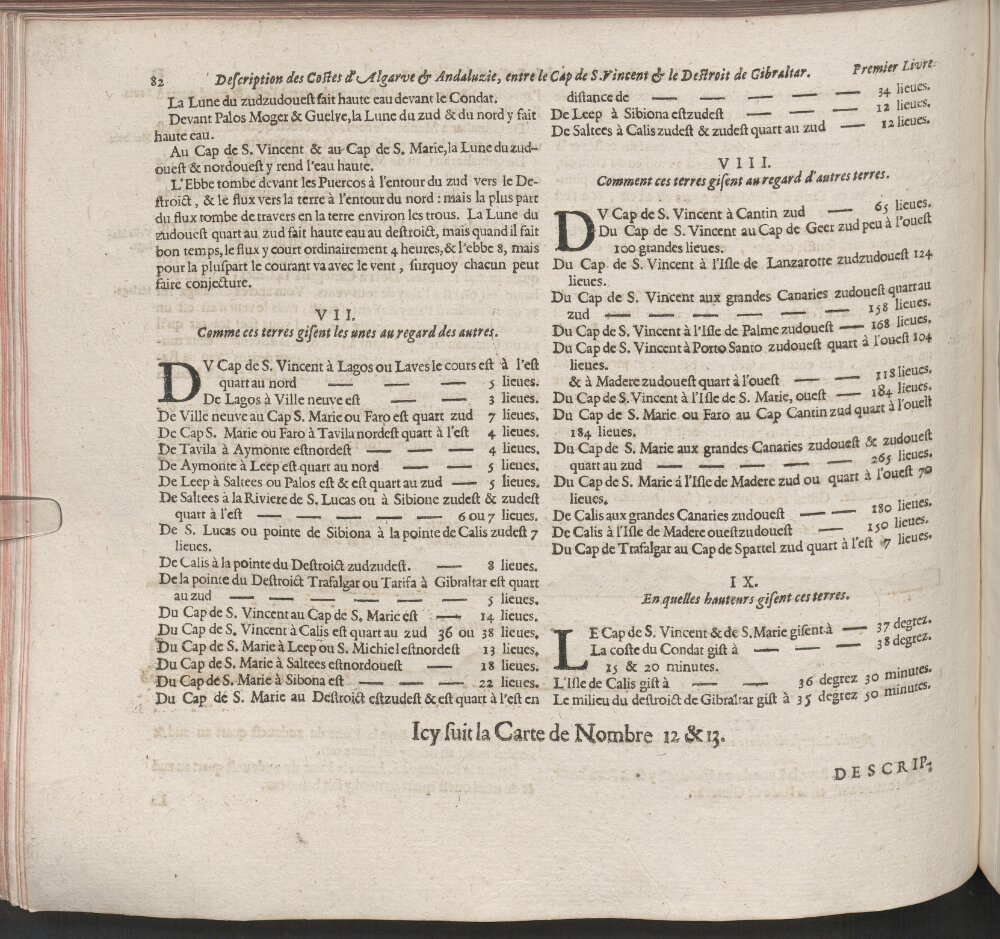 82 Deſcription des Coſtes d'Algarve & Andaluzie, entre le Cap de S. Vincent & le Deſtroit de Gibraltar. Premier Livre.
La Lune du zudzudoueſt fait haute eau devant le Condat.
Devant Palos Moger & Guelve, la Lune du zud & du nord y fait
haute eau.
Au Cap de S. Vincent & au Cap de S. Marie, la Lune du zud-
oueſt & nordoueſt y rend l'eau haute.
L'Ebbe tombe devant les Puercos à l'entour du zud vers le De-
ſtroict, & le flux vers la terre à l'entour du nord: mais la plus part
du flux tombe de travers en la terre environ les trous. La Lune du
zudoueſt quart au zud fait haute eau au deſtroict, mais quand il fait
bon temps, le flux y court ordinairement 4 heures, & l'ebbe 8, mais
pour la pluſpart le courant va avec le vent, ſurquoy chacun peut
faire conjecture.
VII.
Comme ces terres giſent les unes au regard des autres.
DV Cap de S. Vincent à Lagos ou Laves le cours eſt à l'eſt
quart au nord — — — 5 lieues.
De Lagos à Ville neuve eſt — — 3 lieues.
De Ville neuve au Cap S. Marie ou Faro eſt quart zud 7 lieues.
De Cap S. Marie ou Faro à Tavila nordeſt quart à l'eſt 4 lieues.
De Tavila à Aymonte eſtnordeſt — — 4 lieues.
De Aymonte à Leep eſt quart au nord — — 5 lieues.
De Leep à Saltees ou Palos eſt & eſt quart au zud — 5 lieues.
De Saltees à la Riviere de S. Lucas ou à Sibione zudeſt & zudeſt
quart à l'eſt — — — — — 6 ou 7 lieues.
De S. Lucas ou pointe de Sibiona à la pointe de Calis zudeſt 7
lieues.
De Calis à la pointe du Deſtroict zudzudeſt. — 8 lieues.
De la pointe du Deſtroict Trafalgar ou Tarifa à Gibraltar eſt quart
au zud — — — — — 5 lieues.
Du Cap de S. Vincent au Cap de S. Marie eſt — 14 lieues.
Du Cap de S. Vincent à Calis eſt quart au zud 36 ou 38 lieues.
Du Cap de S. Marie à Leep ou S. Michiel eſtnordeſt 13 lieues.
Du Cap de S. Marie à Saltees eſtnordoueſt — 18 lieues.
Du Cap de S. Marie à Sibona eſt — — — 22 lieues.
Du Cap de S. Marie au Deſtroict eſtzudeſt & eſt quart à l'eſt en
diſtance de — — — — — 34 lieues.
De Leep à Sibiona eſtzudeſt — — — 12 lieues.
De Saltees à Calis zudeſt & zudeſt quart au zud — 12 lieues.
VIII.
Comment ces terres giſent au regard d'autres terres.
DV Cap de S. Vincent à Cantin zud — 65 lieues.
Du Cap de S. Vincent au Cap de Geer zud peu à l'oueſt
100 grandes lieues.
Du Cap de S. Vincent à l'Iſle de Lanzarotte zudzudoueſt 124
lieues.
Du Cap de S. Vincent aux grandes Canaries zudoueſt quart au
zud — — — — — — 158 lieues.
Du Cap de S. Vincent à l'Iſle de Palme zudoueſt — 168 lieues.
Du Cap de S. Vincent à Porto Santo zudoueſt quart à l'oueſt 104
lieues.
& à Madere zudoueſt quart à l'oueſt — — 118 lieues.
Du Cap de S. Vincent à l'Iſle de S. Marie, oueſt — 184 lieues.
Du Cap de S. Marie ou Faro au Cap Cantin zud quart à l'oueſt
184 lieues.
Du Cap de S. Marie aux grandes Canaries zudoueſt & zudoueſt
quart au zud — — — — — 265 lieues.
Du Cap de S. Marie á l'Iſle de Madere zud ou quart à l'oueſt 70
lieues.
De Calis aux grandes Canaries zudoueſt — — 180 lieues.
De Calis à l'Iſle de Madere oueſtzudoueſt — 150 lieues.
Du Cap de Trafalgar au Cap de Spartel zud quart à l'eſt 7 lieues.
IX.
En quelles hauteurs giſent ces terres.
LE Cap de S. Vincent & de S. Marie giſent à — 37 degrez.
La coſte du Condat giſt à — — — 38 degrez.
15 & 20 minutes.
L'Iſle de Calis giſt à — — 36 degrez 30 minutes.
Le milieu du deſtroict de Gibraltar giſt à 35 degrez 50 minutes.
Icy ſuit la Carte de Nombre 12 & 13.
DESCRIP-